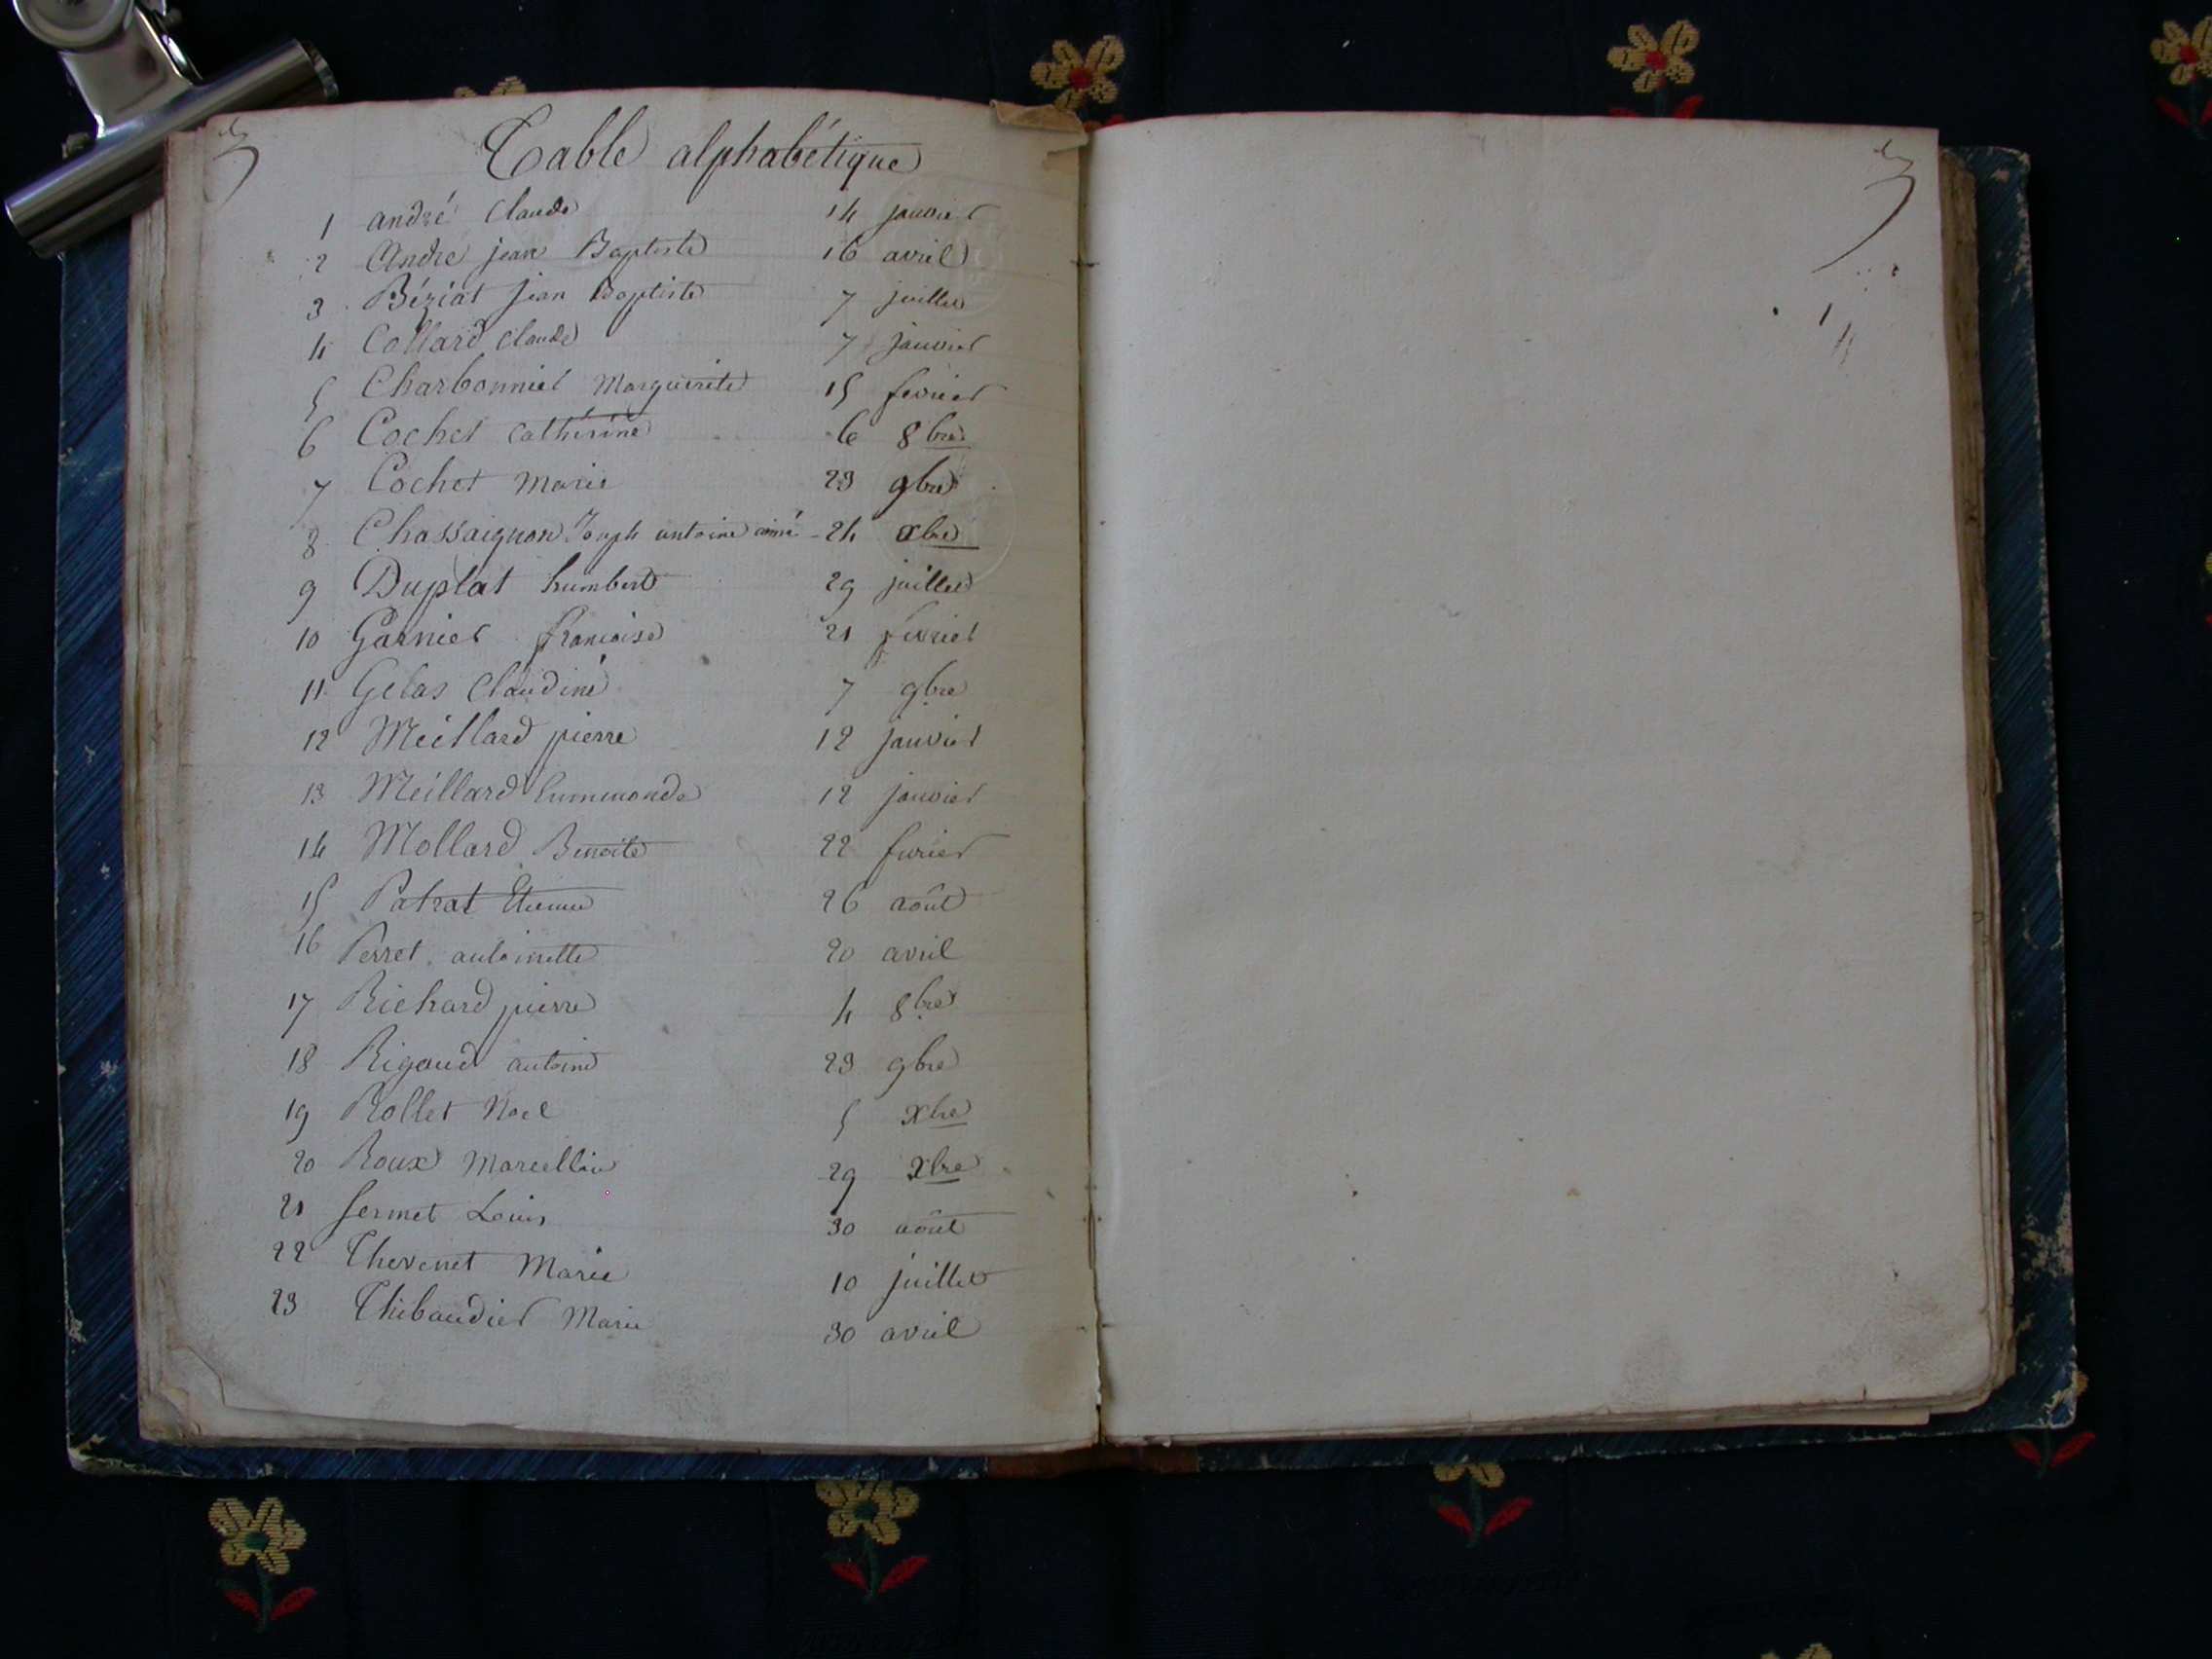 Table alphabétique
1 andré Claude 14 janvier
2 André jean Baptiste 16 avril
3 Béziat jean Baptiste 7 juillet
4 Collard Claude 7 janvier
5 Charbonnier Marguerite 15 fevrier
6 Cochet Catherine 6 8bre
7 Cochet Marie 23 9bre
8 Chassaignon Joseph antoine aimé 24 xbre
9 Duplat humbert 29 juillet
10 Garnier francoise 21 fevrier
11 Gelas Claudine 7 9bre
12 Meillard pierre 12 janvier
13 Meillard 12 janvier
14 Mollard Benoite 22 fevrier
15 Patrat Etienne 26 août
16 Perret antoinette 20 avril
17 Richard pierre 4 8bre
18 Rigaud antoine 23 9bre
19 Rollet Noel 5 xbre
20 Roux Marcellin 29 xbre
21 Sermet Louis 30 août
22 Thevenet Marie 10 juillet
23 Thibaudier Marie 30 avril